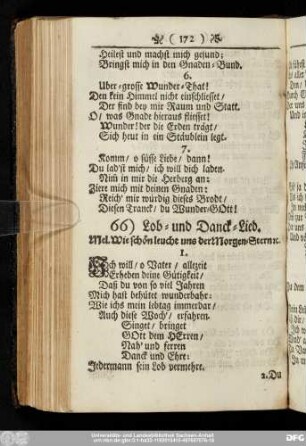 ( 172 )
Heilest und machst mich gesund;
Bringst mich in den Gnaden-Bund.
6.
Uber-grosse Wunder-That!
Den kein Himmel nicht einschliesset/
Der find bey mir Raum und Statt.
O/ was Gnade hieraus fliesset!
Wunder! der die Erden trägt/
Sich heut in ein Stäublein legt.
7.
Komm/ o süsse Liebe/ dann!
Du ladst mich/ ich will dich laden.
Nim̃ in mir die Herberg an:
Ziere mich mit deinen Gnaden:
Reich' mir würdig dieses Brodt/
Diesen Tranck/ du Wunder-GOtt!
66) Lob- und Danck-Lied.
Mel. Wie schön leucht uns der Morgen-Stern ꝛc.
1.
Ich will/ o Vater/ allezeit
Erheben deine Gütigkeit/
Daß du von so viel Jahren
Mich hast behütet wunderbahr:
Wie ichs mein lebtag immerbar/
Auch diese Woch/ erfahren.
Singet/ bringet
GOtt dem HErren/
Nah' und ferren
Danck und Ehre:
Jedermann sein Lob vermehre.
2. Du
Universitäts- und Landesbibliothek Sachsen-Anhalt
DFG